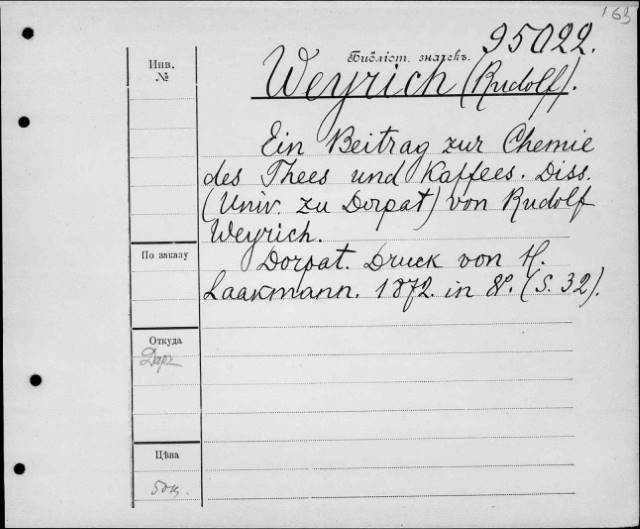 163
95022.
Инв.
№
Библіот. значекъ.
Weyrich (Rudolf).
Ein Beitrag zur Chemie
des Thees und Kaffees. Diss.
(Univ. zu Dorpat) von Rudolf
Weyrich.
По заказу
Dorpat. Druck von H.
Laakmann. 1872. in 8°. (S. 32).
Откуда
Даръ
Цѣна
50